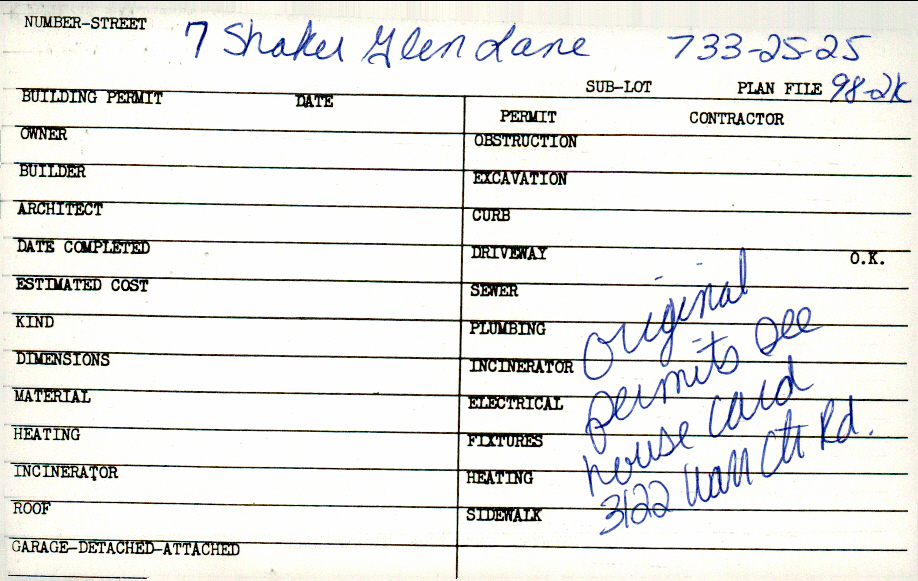 NUMBER-STREET 7 Shaker Glen Lane 733-25-25
SUB-LOT PLAN FILE 98-2K
BUILDING PERMIT DATE
PERMIT CONTRACTOR
OWNER
OBSTRUCTION
BUILDER
EXCAVATION
ARCHITECT
CURB
DATE COMPLETED
DRIVEWAY O.K.
ESTIMATED COST
SEWER
KIND
PLUMBING
DIMENSIONS
INCINERATOR
MATERIAL
ELECTRICAL
HEATING
FIXTURES
INCINERATOR
HEATING
ROOF
SIDEWALK
GARAGE-DETACHED-ATTACHED
Original
permits see
house card
3122 Warr Ctr Rd.